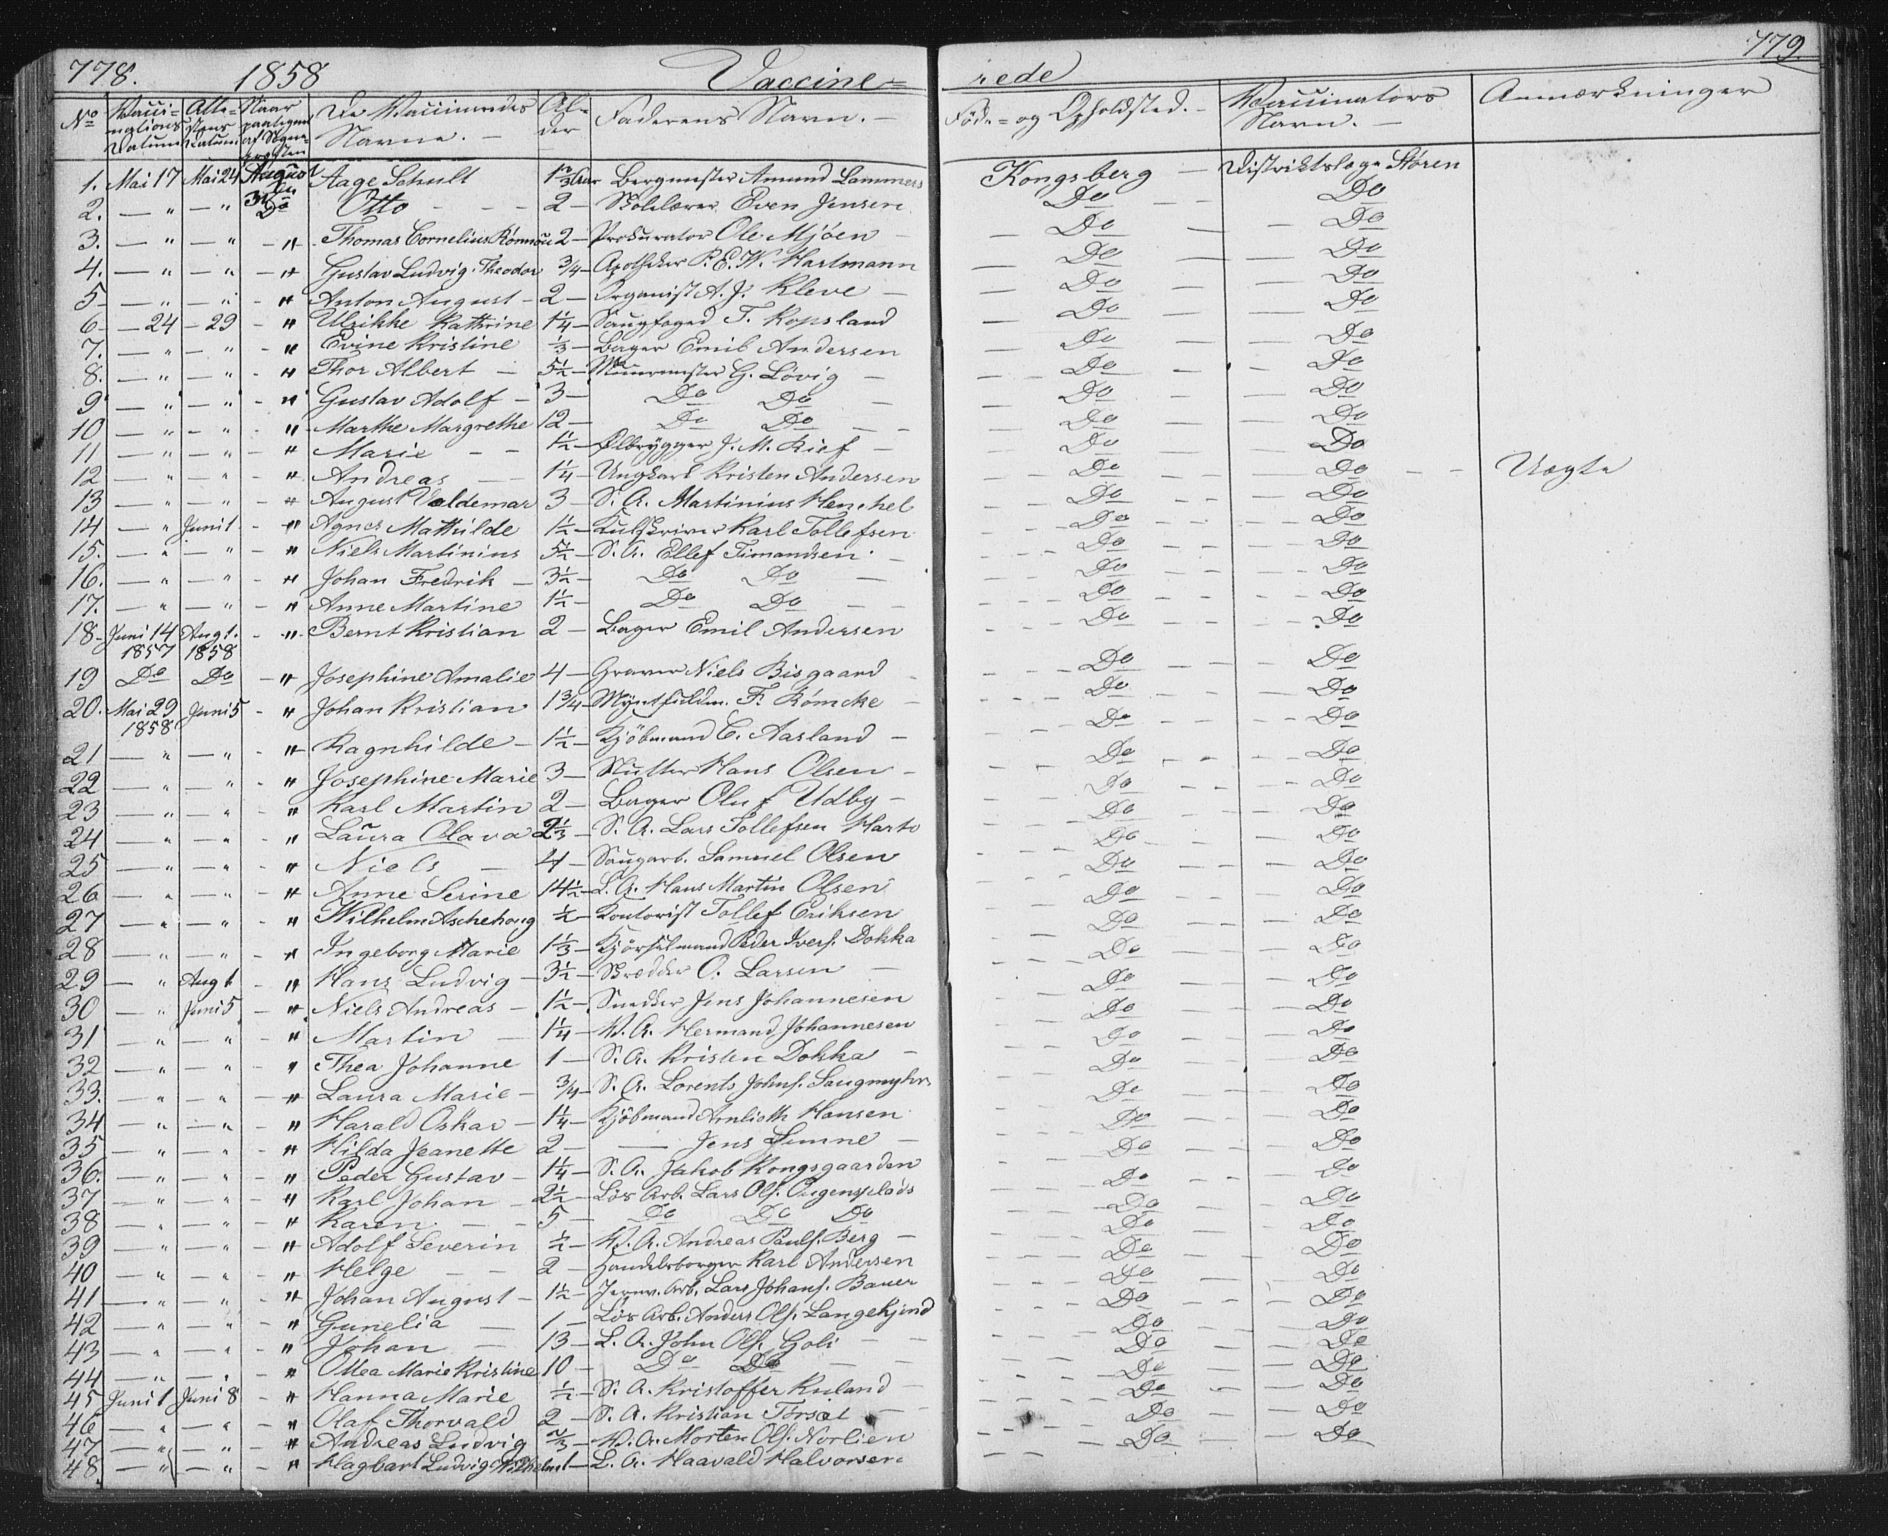 778. 1858 Vaccine=
rede 779.
No Vacci-nations Datum Atte-stens Datum Naar paategnet af Sogne-præsten De Vaccineredes Navne. Al-der Faderens Navn. Føde- og Opholdsted. Vaccinators Navn. Anmærkninger
1. Mai 17 Mai 24 August 31te Aage Schult 1 2/3 Aar Bergmester Amund Lammers Kongsberg Distriktslæge Støren
2. — " — " Do Otto 2 — Skolelærer Even Jensen Do Do
3. — " — " — " Thomas Cornelius Rønnau 2 — Prokurator Ole Mjöen Do Do
4. — " — " — " Gustav Ludvig Theodor 3/4 — Apotheker P. E. W. Hartmann Do Do
5 — " — " — " Anton August 2 — Organist A. J. Kleve Do Do
6 — 24 — 29 — " Ulrikke Kathrine 1 1/4 — Saugfoged T. Kopsland Do Do
7. — " — " — " Evine Kristine 1/3 — Bager Emil Andersen Do Do
8. — " — " — " Thor Albert — 5 1/2 — Muurmester G. Lövig Do Do
9 — " — " — " Gustav Adolf — 3 — Do Do Do Do
10 — " — " — " Marthe Margrethe 12 — Do Do Do Do
11 — " — " — " Marie 1 1/2 — Ølbrygger J. M. Kief Do Do
12 — " — " — " Andreas 1 1/4 — Ungkarl Kristen Andersen Do Do Uægte
13 — " — " — " August Valdemar 3 — S. A. Martinius Henchel Do Do
14 — " Juni 1 — " Agnes Mathilde 1 1/2 — Kulskriver Karl Tollefsen Do Do
15. — " — " — " Niels Martinius 5 1/2 — S. A. Ellef Simandsen Do Do
16. — " — " — " Johan Fredrik — 3 1/2 — Do Do Do Do
17. — " — " — " Anne Martine 1 1/2 — Do Do Do Do
18 — Juni 14 1857 Aug 1. 1858 — " Bernt Kristian 2 — Bager Emil Andersen Do Do
19 Do Do — " Josephine Amalie 4 — Graver Niels Bisgaard Do Do
20. Mai 29 1858 Juni 5 — " Johan Kristian 1 3/4 — Myntfuldm. F. Rømcke Do Do
21 — " — " — " Ragnhilde — 1 1/2 — Kjöbmand C. Aasland Do Do
22 — " — " — " Josephine Marie 3 — Hans Olsen Do Do
23 — " — " — " Karl Martin 2 — Bager Oluf Udby Do Do
24 — " — " — " Laura Olava 2 1/3 — S. A. Lars Tollefsen Do Do
25 — " — " — " Niels 4 — Saugarb. Samuel Olsen Do Do
26 — " — " — " Anne Serine 14 1/2 — L. A. Hans Martin Olsen Do Do
27 — " — " — " Wilhelm Aschehoug 1/2 — Kontorist Tollef Eriksen Do Do
28 — " — " — " Ingeborg Marie 1 1/3 — Kjörselmand Peder Ivers. Dokka Do Do
29 — " Aug 1 — " Hans Ludvig — 3 1/2 — Skredder O. Larsen Do Do
30 — " Juni 5 — " Niels Andreas — 1 1/2 — Snedker Jens Johannesen Do Do
31 — " — " — " Martin 1 1/4 — W. A. Hermand Johannesen Do Do
32 — " — " — " Thea Johanne 1 — S. A. Kristen Dokka Do Do
33. — " — " — " Laura Marie — 3/4 — S. A. Lorents Johns. Saugmyhr Do Do
34 — " — " — " Harald Oskar — 1 1/4 — Kjöbmand Arnlioth Hansen Do Do
35 — " — " — " Hilda Jeanette 2 — — Jens Lunne Do Do
36. — " — " — " Peder Gustav — 1 1/4 — S. A. Jakob Kongsgaarden Do Do
37 — " — " — " Karl Johan — 2 1/2 — Lös Arb. Lars Ols. Engensplads Do Do
38 — " — " — " Karen 5 — Do Do Do Do Do
39 — " — " — " Adolf Severin 1/2 — W. A. Andreas Pauls. Berg Do Do
40 — " — " — " Helge 2 — Handelsborger Karl Andersen Do Do
41 — " — " — " Johan August — 1 1/2 — Jernv. Arb. Lars Johans. Bauer Do Do
42 — " — " — " Gunelia 1 — Lös Arb. Anders Ols. Langekjend Do Do
43 — " — " — " Johan 13 — L. A. John Ols. Goli Do Do
44 — " — " — " Ottea Marie Kristine 10 — Do Do Do Do
45 Juni 1 Juni 8 — " Hanna Marie 1/2 — S. A. Kristoffer Ruland Do Do
46 — " — " — " Olaf Thorvald 2 — S. A. Kristian Do Do
47 — " — " — " Andreas Ludvig 2/3 — W. A. Morten Ols. Norlien Do Do
48 — " — " — " Hagbart Ludvig Wilhelm 1 — L. A. Haavald Halvorsen Do Do